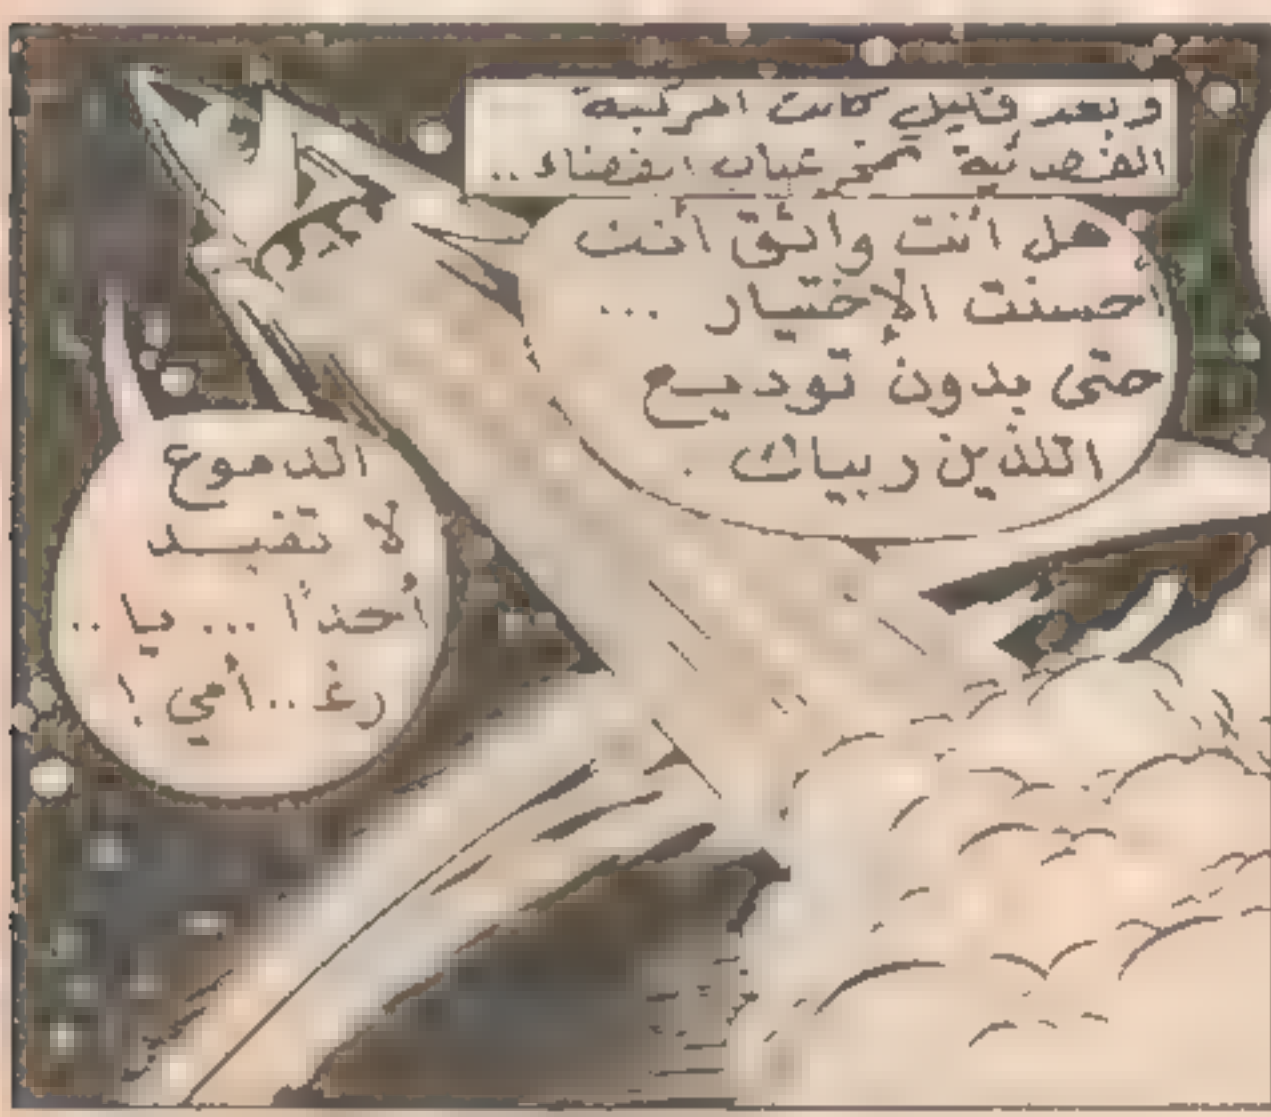 وبعد قليل كانت المركبة
الفضائية تمخر عباب الفضاء ..
هل أنت واثق أنك
أحسنت الإختيار ...
حتى بدون توديع
اللذين ربياك .
الدموع
لا تفيد
أحدًا ... يا ..
رغـ .. أمي !